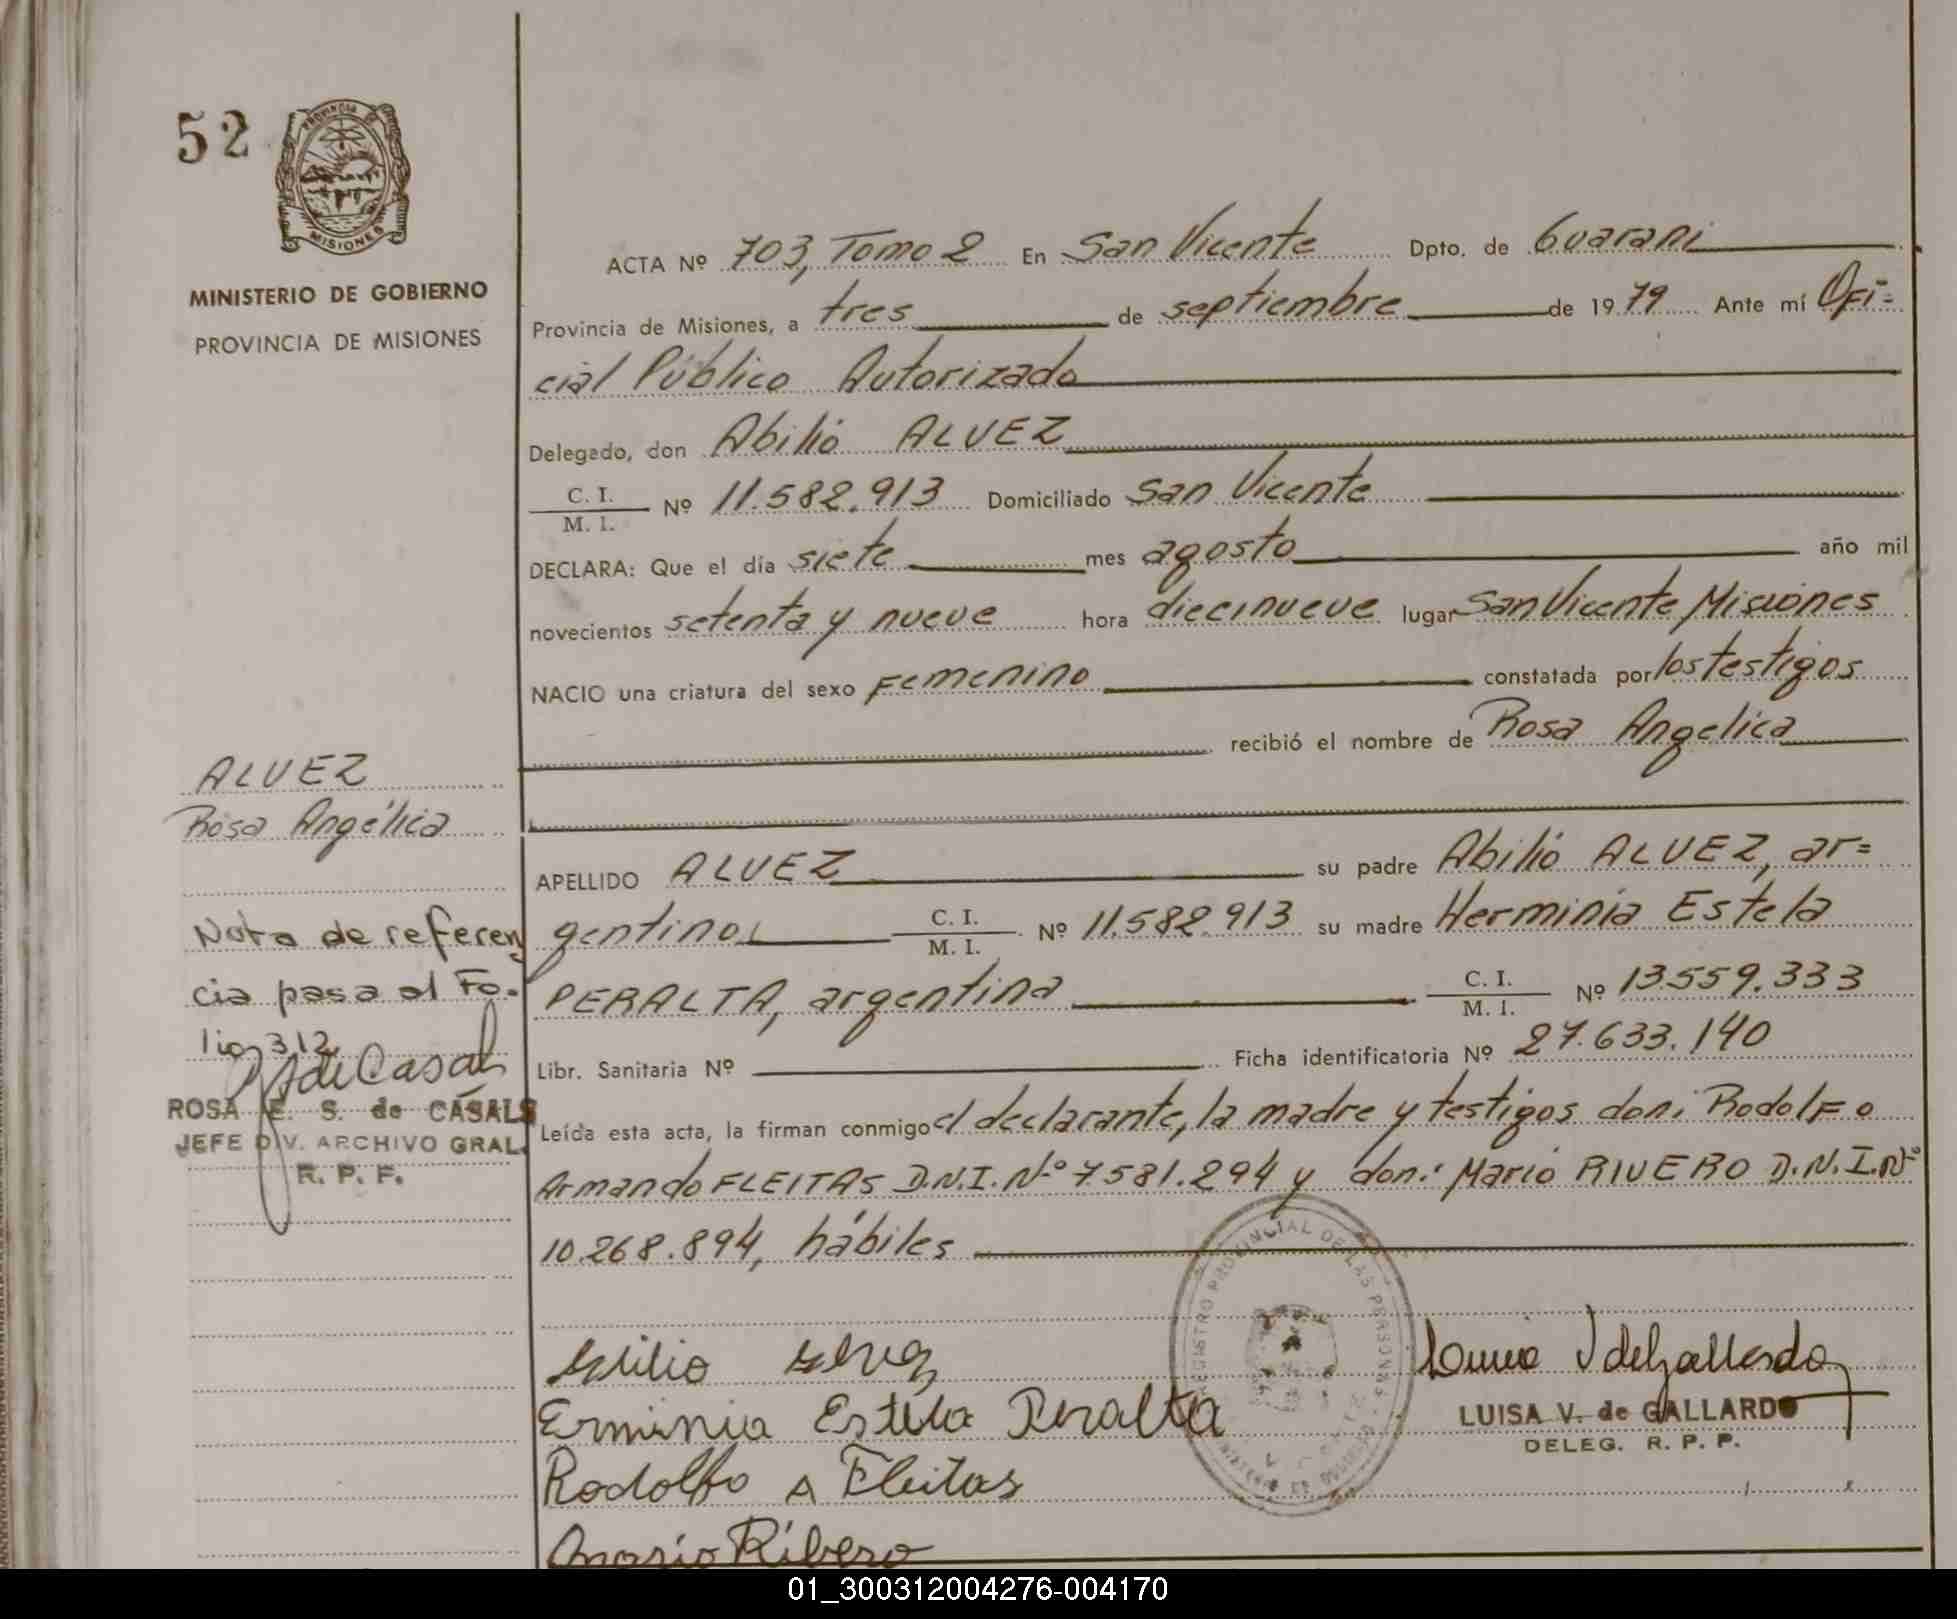 52
PROVINCIA DE
MISIONES
MINISTERIO DE GOBIERNO
PROVINCIA DE MISIONES
ACTA Nº 703, Tomo 2 En San Vicente Dpto. de Guarani
Provincia de Misiones, a tres de septiembre de 1979 Ante mí Ofi=
cial Público Autorizado
Delegado, don Abilio ALVEZ
C. I.
M. I. Nº 11.582.913 Domiciliado San Vicente
DECLARA: Que el día siete mes agosto año mil
novecientos setenta y nueve hora diecinueve lugar San Vicente Misiones
NACIO una criatura del sexo Femenino constatada por los testigos
recibió el nombre de Rosa Angelica
ALVEZ
Rosa Angélica
APELLIDO ALVEZ su padre Abilio ALVEZ, ar=
gentino, C. I.
M. I. Nº 11.582.913 su madre Herminia Estela
PERALTA, argentina C. I.
M. I. Nº 13.559.333
Libr. Sanitaria Nº Ficha identificatoria Nº 27.633.140
Leída esta acta, la firman conmigo el declarante, la madre y testigos don: Rodolfo
Armando FLEITAS D.N.I. Nº 7.581.294 y don: Mario RIVERO D.N.I. Nº
10.268.894, hábiles
Nota de referen
cia pasa al Fo-
lio 312
de Casals
ROSA E. S. de CASALS
JEFE DIV. ARCHIVO GRAL.
R. P. P.
REGISTRO PROVINCIAL DE LAS PERSONAS
MINISTERIO DE GOBIERNO
Erminia Estela Peralta
Rodolfo A Fleitas
Mario Ribero
LUISA V. de GALLARDO
DELEG. R. P. P.
01_300312004276-004170